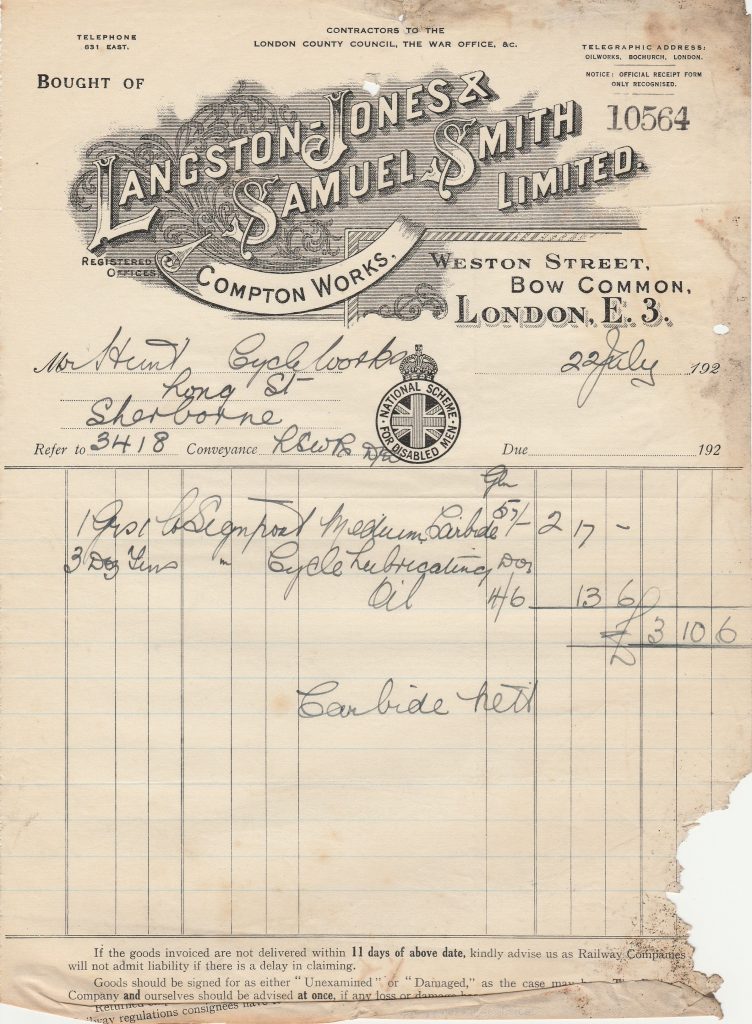 TELEPHONE
631 EAST.
CONTRACTORS TO THE
LONDON COUNTY COUNCIL, THE WAR OFFICE, &c.
TELEGRAPHIC ADDRESS:
OILWORKS, BOCHURCH, LONDON.
NOTICE: OFFICIAL RECEIPT FORM
ONLY RECOGNISED.
10564
BOUGHT OF
LANGSTON-JONES &
SAMUEL SMITH
LIMITED.
REGISTERED
OFFICES
COMPTON WORKS,
WESTON STREET,
BOW COMMON,
LONDON, E. 3.
Mr Hunt Cycle Works 22 July 192
Long St
Sherborne
NATIONAL SCHEME
FOR DISABLED MEN
Refer to 3418 Conveyance Due 192
1 Signpost Medium Carbide 57/- 2 17 -
3 Doz Tins " Cycle Lubricating Doz
Oil 4/6 13 6
£ 3 10 6
Carbide nett
If the goods invoiced are not delivered within 11 days of above date, kindly advise us as Railway Companies
will not admit liability if there is a delay in claiming.
Goods should be signed for as either "Unexamined" or "Damaged," as the case may
Company and ourselves should be advised at once, if any loss or damage
Returned
railway regulations consignees have